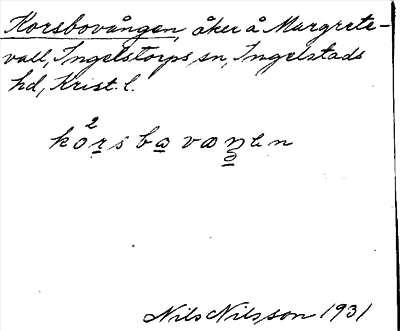 Korsbovången, åker å Margrete-
vall, Ingelstorps sn, Ingelstads
hd, Krist. l.
ko²rsbavaŋen
Nils Nilsson 1931